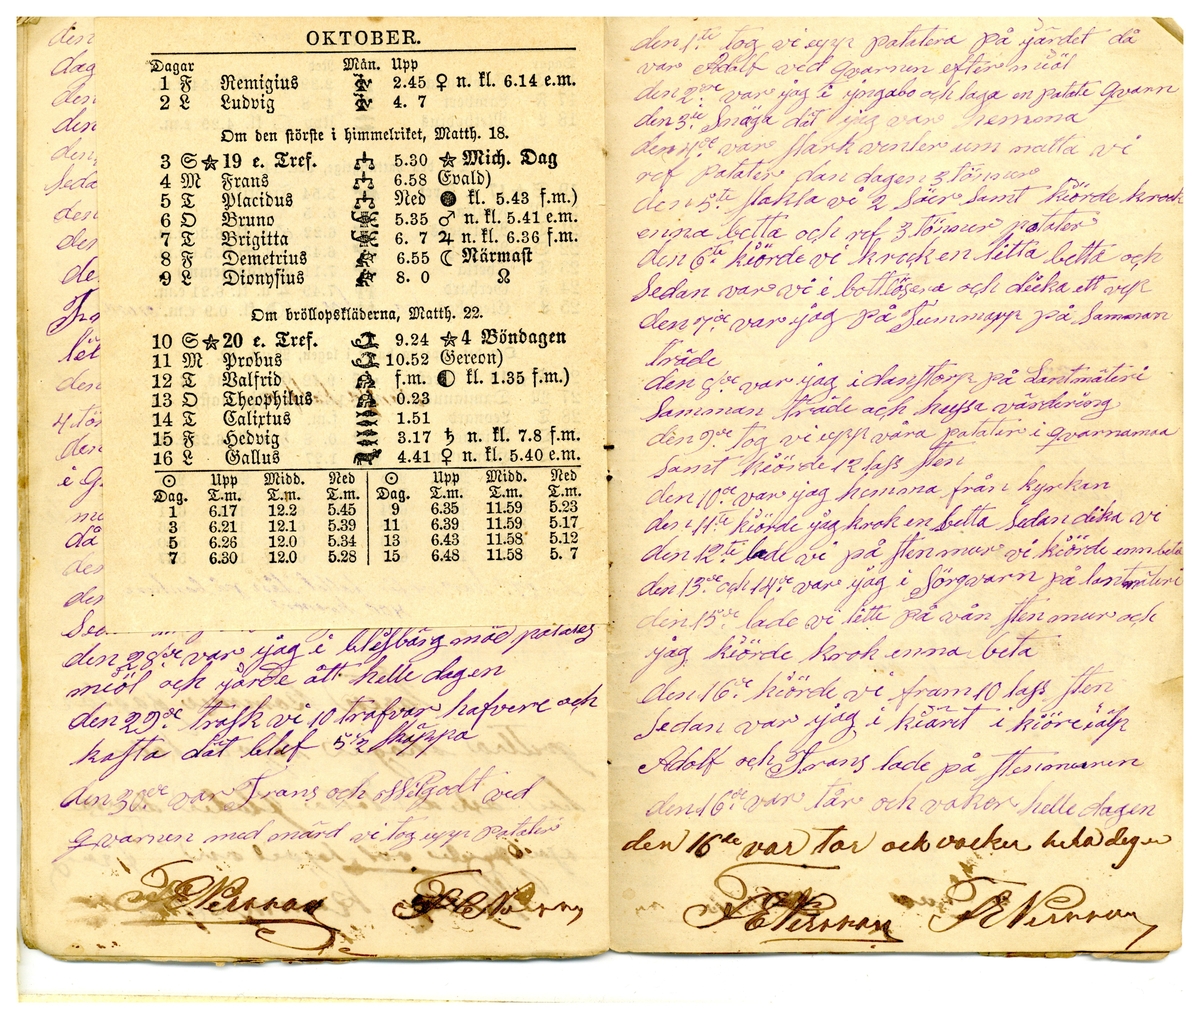 OKTOBER.
Dagar Mån. Upp
1 F Remigius 2.45 ♀ n. kl. 6.14 e.m.
2 L Ludvig 4. 7
Om den störste i himmelriket, Matth. 18.
3 S ★ 19 e. Tref. 5.30 ★ Mich. Dag
4 M Frans 6.58 Evald)
5 T Placidus Ned ● kl. 5.43 f.m.)
6 O Bruno 5.35 ♂ n. kl. 5.41 e.m.
7 T Brigitta 6. 7 ♃ n. kl. 6.36 f.m.
8 F Demetrius 6.55 ☾ Närmast
9 L Dionysius 8. 0 ☊
Om bröllopskläderna, Matth. 22.
10 S ★ 20 e. Tref. 9.24 ★ 4 Böndagen
11 M Probus 10.52 Gereon)
12 T Valfrid f.m. ◐ kl. 1.35 f.m.)
13 O Theophilus 0.23
14 T Calixtus 1.51
15 F Hedvig 3.17 ♄ n. kl. 7.8 f.m.
16 L Gallus 4.41 ♀ n. kl. 5.40 e.m.
☉ Upp Midd. Ned ☉ Upp Midd. Ned
Dag. T.m. T.m. T.m. Dag. T.m. T.m. T.m.
1 6.17 12.2 5.45 9 6.35 11.59 5.23
3 6.21 12.1 5.39 11 6.39 11.59 5.17
5 6.26 12.0 5.34 13 6.43 11.58 5.12
7 6.30 12.0 5.28 15 6.48 11.58 5. 7
den 28de var jag i blåsbärg möd patates
miöl och jorde ått helle dagen
den 29de trask vi 10 trafvar hafvere och
kasta dåt blef 5 1/2 skäppa
den 30de var Frans och Wilgodt ved
qvarnen med mård vi tog upp patater
F E Nerman F E Nerman
den 1te tog vi upp patatera på järdet då
var Adolf ved qvarnen efter miöl
den 2de var jag i yngabo och laga en patate qvarn
den 3te Snäga dåt jag var hemma
den 4de var stark venter um natta vi
ref patater dan dagen 3 tönnor
den 5te slakta vi 2 Söer samt kiörde krok
enna betta och ref 3 tönnor patater
den 6te kiörde vi krok en litta betta och
Sedan var vi i bottlösera och dika ett vep
den 7de var jag på Tummapp på Samman
träde
den 8de var jag i danstorp på Lantmäteri
Samman träde och hussa värdering
den 9de tog vi upp våra patater i qvarnamaa
Samt kiörde 12 lass sten
den 10de var jag hemma från kyrkan
den 11te kiörde jag krok en betta Sedan dika vi
den 12te lade vi på sten mur vi kiörde enn beta
den 13de och 14de var jag i Sörqvarn på lantmäteri
den 15de lade vi litte på vån sten mur och
jag kiörde krok enna beta
den 16de kiörde vi fram 10 lass sten
Sedan var jag i kiäret i kiöreiälp
Adolf och Frans lade på stenmuren
den 16de var tår och vaker helle dagen
den 16de var tor och vacker hela dagen
F E Nerman F E Nerman